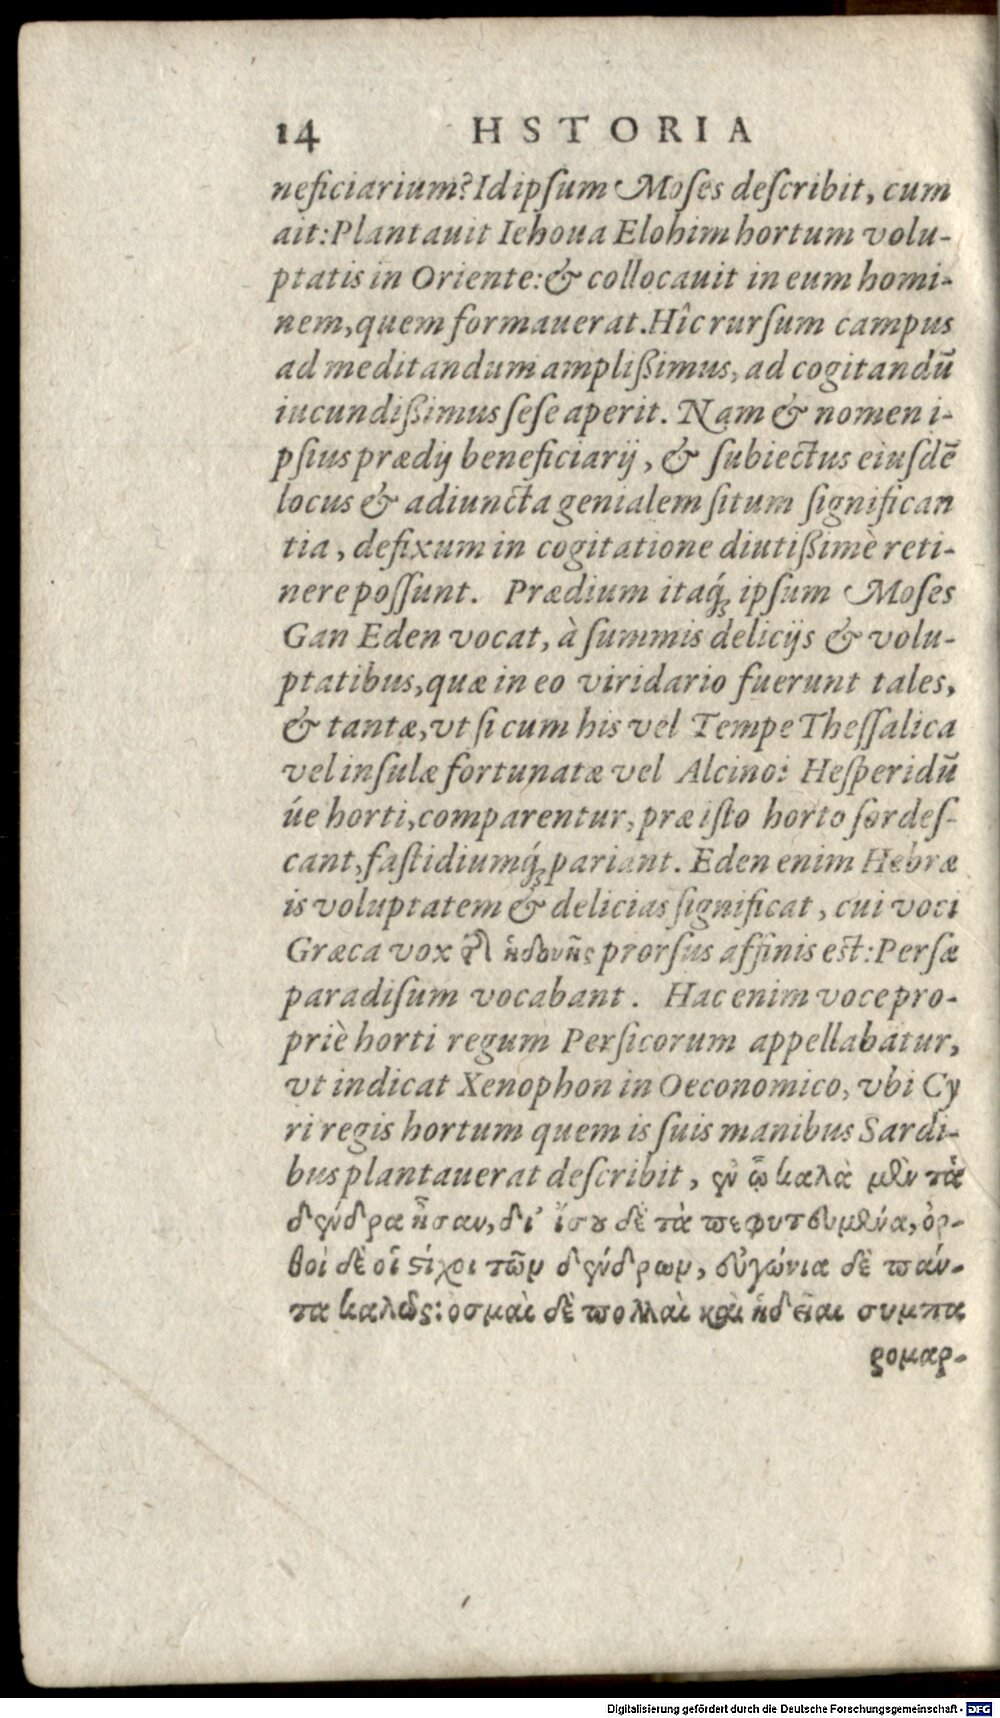 14 HSTORIA
neficiarium? Idipſum Moſes deſcribit, cum
ait: Plantauit Iehoua Elohim hortum volu-
ptatis in Oriente: & collocauit in eum homi-
nem, quem formauerat. Hîc rurſum campus
ad meditandum amplißimus, ad cogitandū
iucundißimus ſeſe aperit. Nam & nomen i-
pſius prædij beneficiarij, & ſubiectus eiuſdē
locus & adiuncta genialem ſitum ſignifican
tia, defixum in cogitatione diutißimè reti-
nere poſſunt. Prædium itaq́ꝫ ipſum Moſes
Gan Eden vocat, à ſummis delicijs & volu-
ptatibus, quæ in eo viridario fuerunt tales,
& tantæ, vt ſi cum his vel Tempe Theſſalica
vel inſulæ fortunatæ vel Alcinoi Heſperidū
úe horti, comparentur, præ iſto horto ſordeſ-
cant, faſtidiumq́ꝫ pariant. Eden enim Hebræ
is voluptatem & delicias ſignificat, cui voci
Græca vox τῆ ἡδονῆς prorſus affinis eſt: Perſæ
paradiſum vocabant. Hac enim voce pro-
priè horti regum Perſicorum appellabatur,
vt indicat Xenophon in Oeconomico, vbi Cy
ri regis hortum quem is ſuis manibus Sardi-
bus plantauerat deſcribit, ἐν ᾧ καλὰ μὲν τὰ
δένδρα ἦσαν, δι' ἴσου δὲ τὰ πεφυτευμένα, ὀρ-
θοὶ δὲ οἱ στίχοι τῶν δένδρων, εὐγώνια δὲ πάν-
τα καλῶς: οσμαὶ δὲ πολλαὶ καὶ ἡδεῖαι συμπα
ρομαρ-
Digitalisierung gefördert durch die Deutsche Forschungsgemeinschaft - DFG